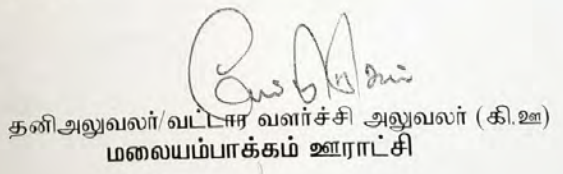 தனிஅலுவலர்/வட்டார வளர்ச்சி அலுவலர் (கி.ஊ)
மலையம்பாக்கம் ஊராட்சி